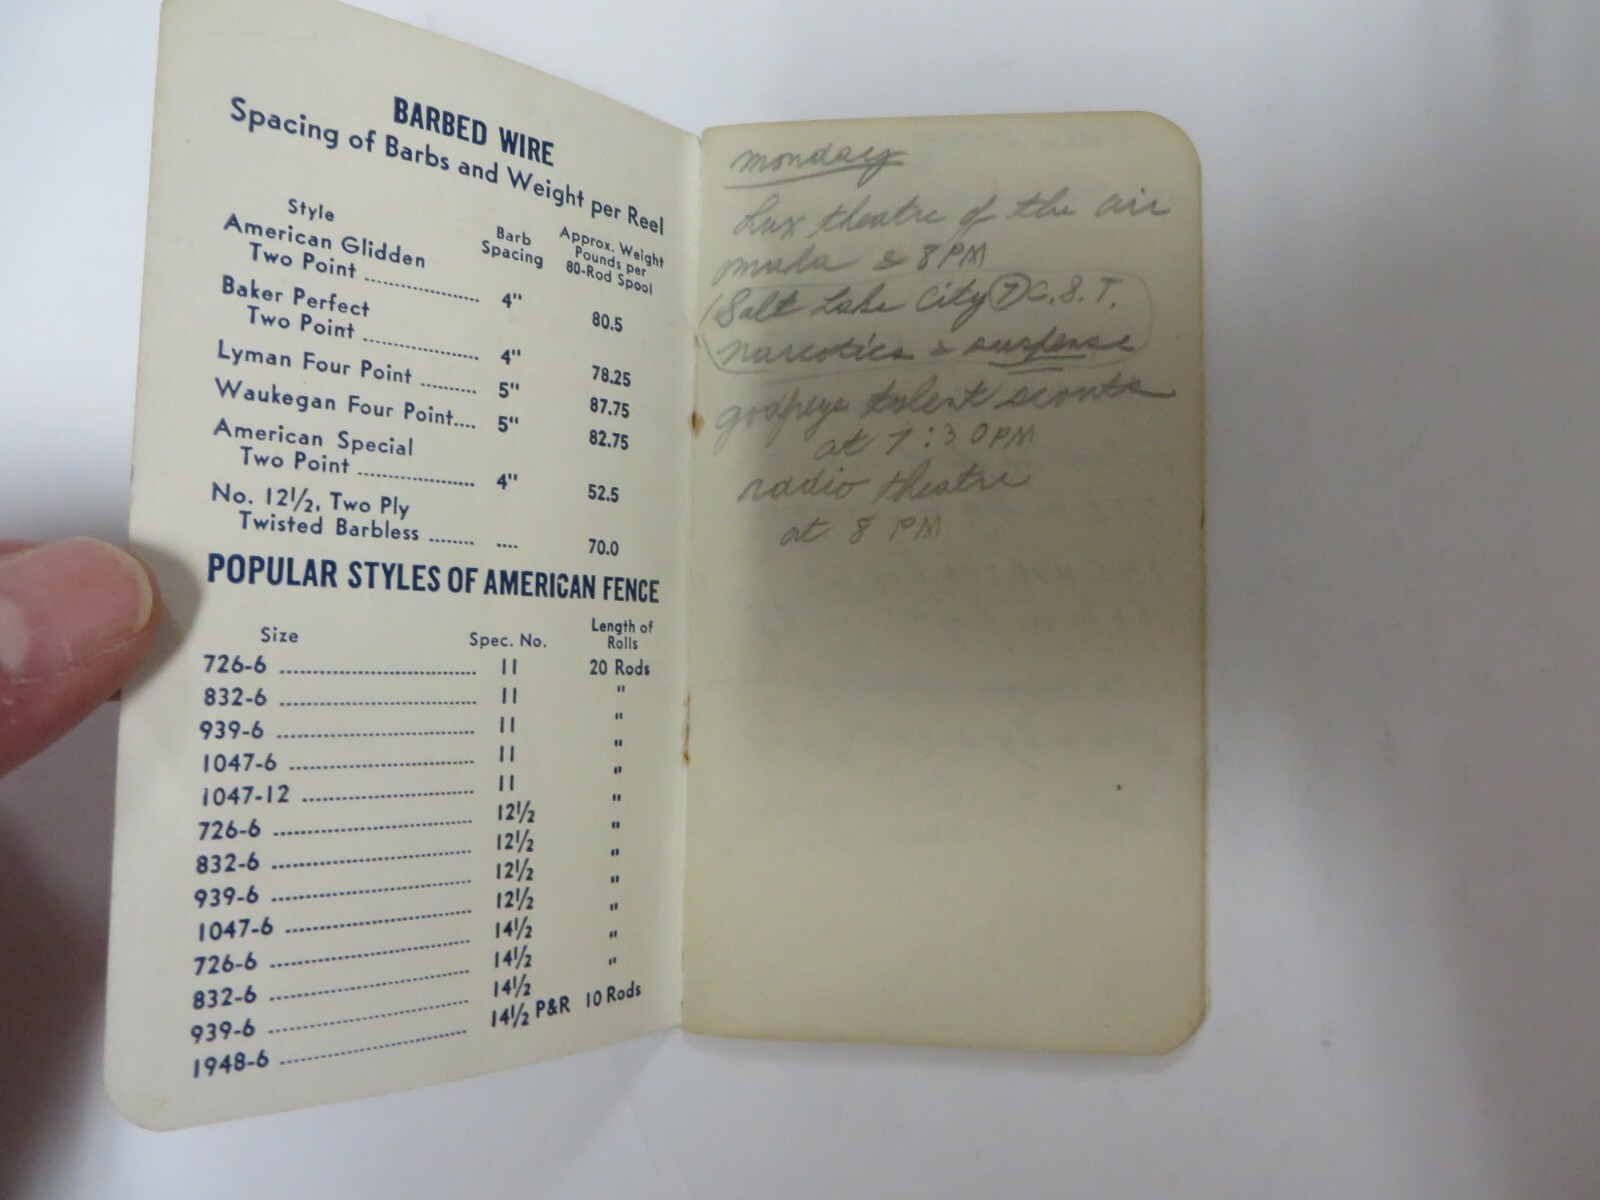 BARBED WIRE
Spacing of Barbs and Weight per Reel
Style Barb Spacing Approx. Weight Pounds per 80-Rod Spool
American Glidden
Two Point .................. 4" 80.5
Baker Perfect
Two Point .................. 4" 78.25
Lyman Four Point .......... 5" 87.75
Waukegan Four Point.... 5" 82.75
American Special
Two Point .................. 4" 52.5
No. 12½, Two Ply
Twisted Barbless ........ .... 70.0
POPULAR STYLES OF AMERICAN FENCE
Size Spec. No. Length of Rolls
726-6 .......... 11 20 Rods
832-6 .......... 11 "
939-6 .......... 11 "
1047-6 .......... 11 "
1047-12 .......... 11 "
726-6 .......... 12½ "
832-6 .......... 12½ "
939-6 .......... 12½ "
1047-6 .......... 12½ "
726-6 .......... 14½ "
832-6 .......... 14½ "
939-6 .......... 14½
1948-6 .......... 14½ P&R 10 Rods
monday
Lux theatre of the air
omaha & 8 PM
Salt Lake City 7 C.S.T.
narcotics & suspense
godfreys talent scouts
at 7:30 PM
radio theatre
at 8 PM